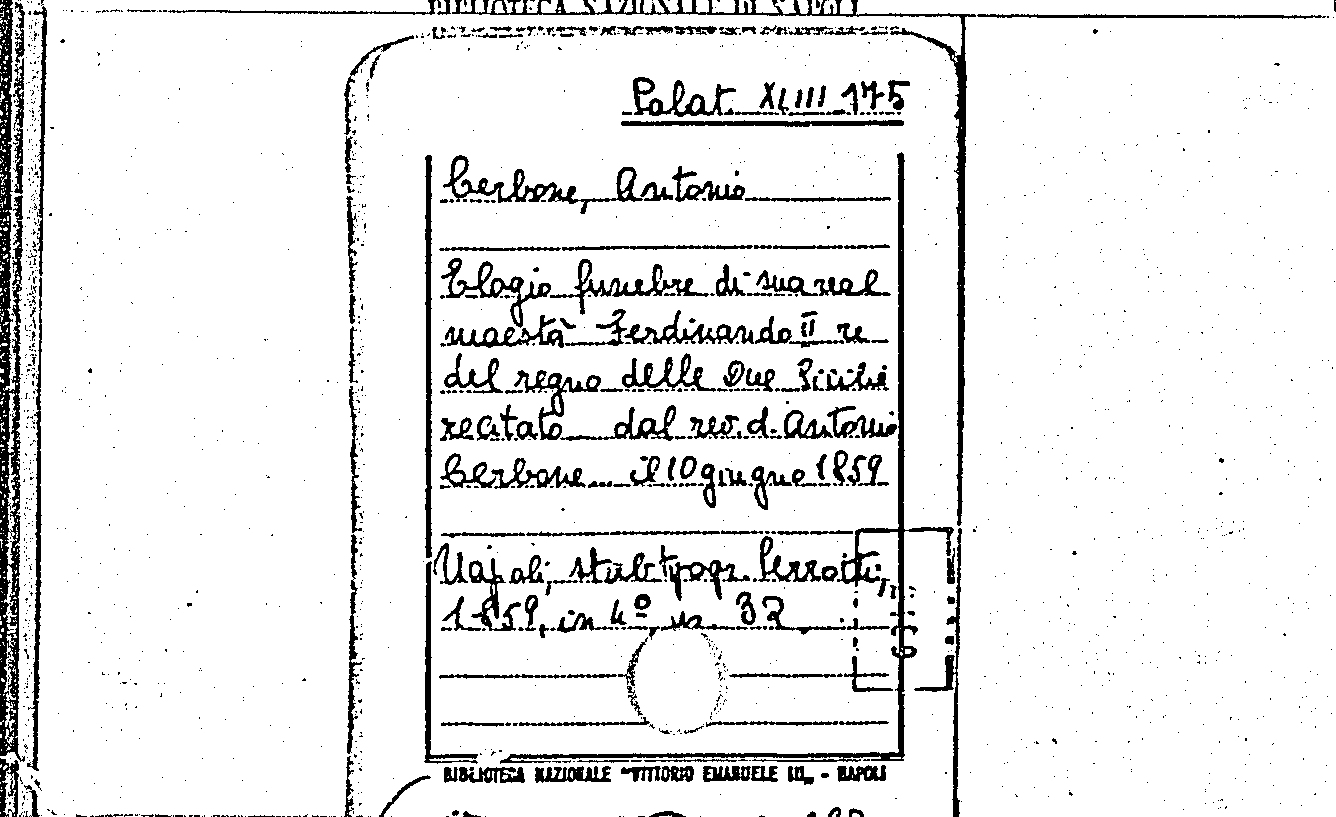 BIBLIOTECA NAZIONALE DI NAPOLI
Palat. XLIII 175
Cerbone, Antonio
Elogio funebre di sua real
maestà Ferdinando II re
del regno delle Due Sicilie
recitato dal rev. d. Antonio
Cerbone... il 10 giugno 1859
Napoli, stab. tipogr. Perrotti,
1859, in 4º 32
BIBLIOTECA NAZIONALE "VITTORIO EMANUELE III" - NAPOLI